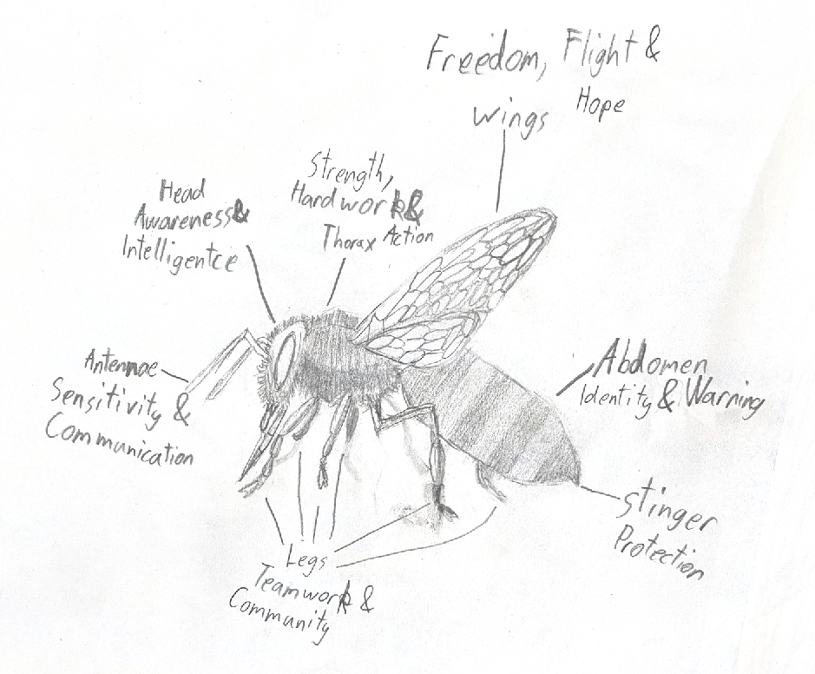 Freedom, Flight &
Hope
wings
Strength,
Hardwork &
Action
Thorax
Head
Awareness &
Intelligentce
Antennae
Sensitivity &
Communication
Abdomen
Identity & Warning
Stinger
Protection
Legs
Teamwork &
Community